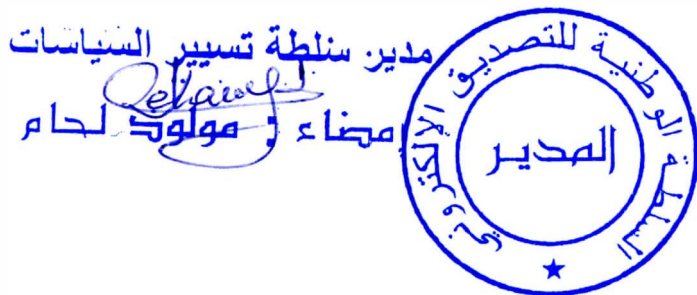 مدير سلطة تسيير السياسات
إمضاء : مولود لحام
السلطة الوطنية للتصديق الإلكتروني
المدير